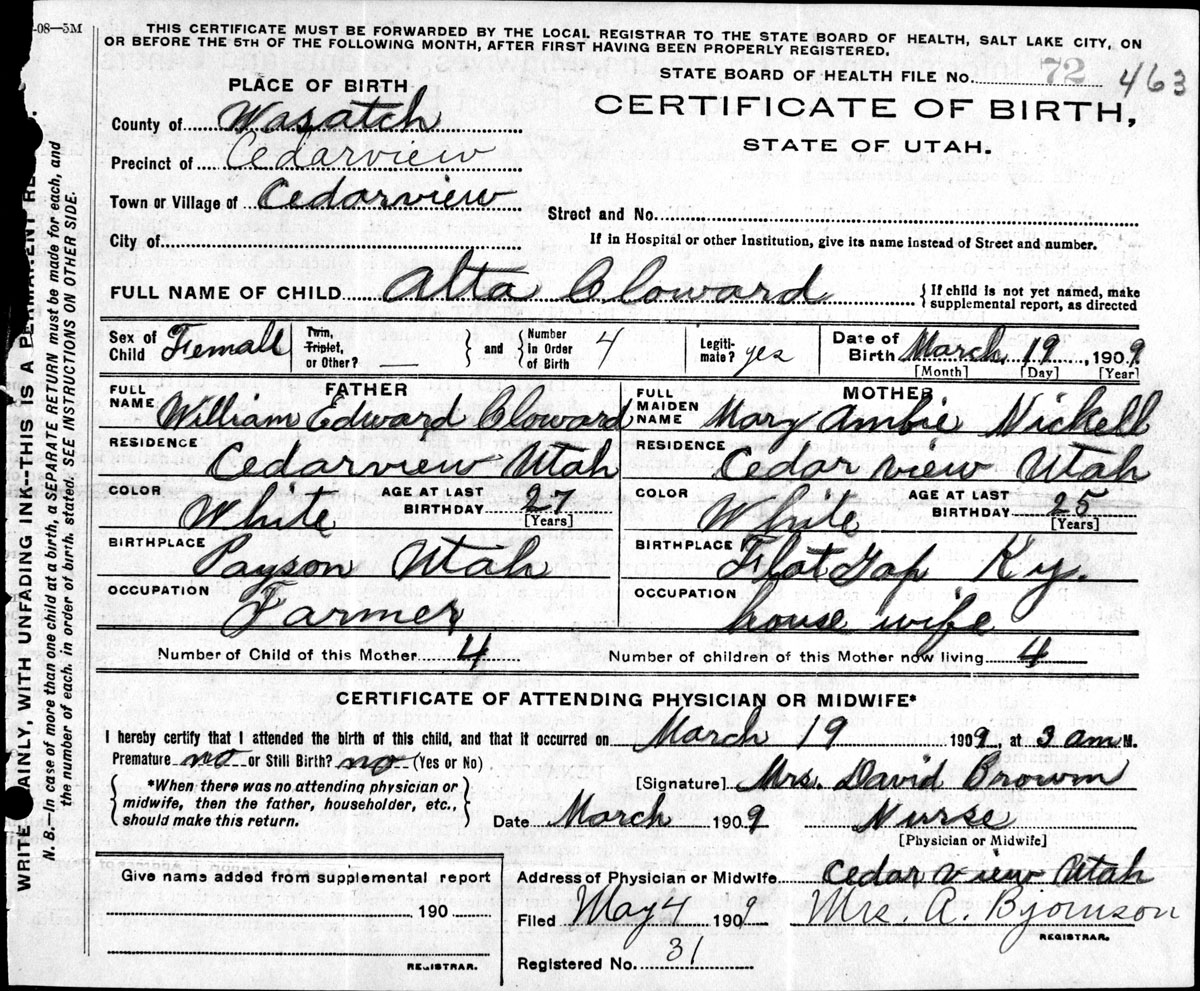 -08—5M
THIS CERTIFICATE MUST BE FORWARDED BY THE LOCAL REGISTRAR TO THE STATE BOARD OF HEALTH, SALT LAKE CITY, ON
OR BEFORE THE 5TH OF THE FOLLOWING MONTH, AFTER FIRST HAVING BEEN PROPERLY REGISTERED.
STATE BOARD OF HEALTH FILE No. 72 463
PLACE OF BIRTH
CERTIFICATE OF BIRTH,
STATE OF UTAH.
County of Wasatch
Precinct of Cedarview
Town or Village of Cedarview
Street and No.
City of
If in Hospital or other Institution, give its name instead of Street and number.
FULL NAME OF CHILD Alta Cloward
{If child is not yet named, make
supplemental report, as directed
Sex of Child Femall
Twin, Triplet, or Other? —
and
Number In Order of Birth 4
Legiti- mate? yes
Date of Birth March 19, 1909
[Month] [Day] [Year]
FATHER
FULL NAME William Edward Cloward
RESIDENCE Cedarview Utah
COLOR White
AGE AT LAST BIRTHDAY 27
[Years]
BIRTHPLACE Payson Utah
OCCUPATION Farmer
MOTHER
FULL MAIDEN NAME Mary Ambie Nickell
RESIDENCE Cedar view Utah
COLOR White
AGE AT LAST BIRTHDAY 25
[Years]
BIRTHPLACE Flat Gap Ky.
OCCUPATION house wife
Number of Child of this Mother 4
Number of children of this Mother now living 4
CERTIFICATE OF ATTENDING PHYSICIAN OR MIDWIFE*
I hereby certify that I attended the birth of this child, and that it occurred on March 19 1909, at 3 am M.
Premature no or Still Birth? no (Yes or No)
*When there was no attending physician or
midwife, then the father, householder, etc.,
should make this return.
[Signature] Mrs. David Browm
Date March 1909 Nurse
[Physician or Midwife]
Give name added from supplemental report
190
REGISTRAR.
Address of Physician or Midwife Cedar View Utah
Filed May 4 1909 Mrs. A. Bjornson
REGISTRAR.
Registered No. 31
WRITE AINLY, WITH UNFADING INK—THIS IS A PERMANENT RE
N. B.—In case of more than one child at a birth, a SEPARATE RETURN must be made for each, and
the number of each, in order of birth, stated. SEE INSTRUCTIONS ON OTHER SIDE.